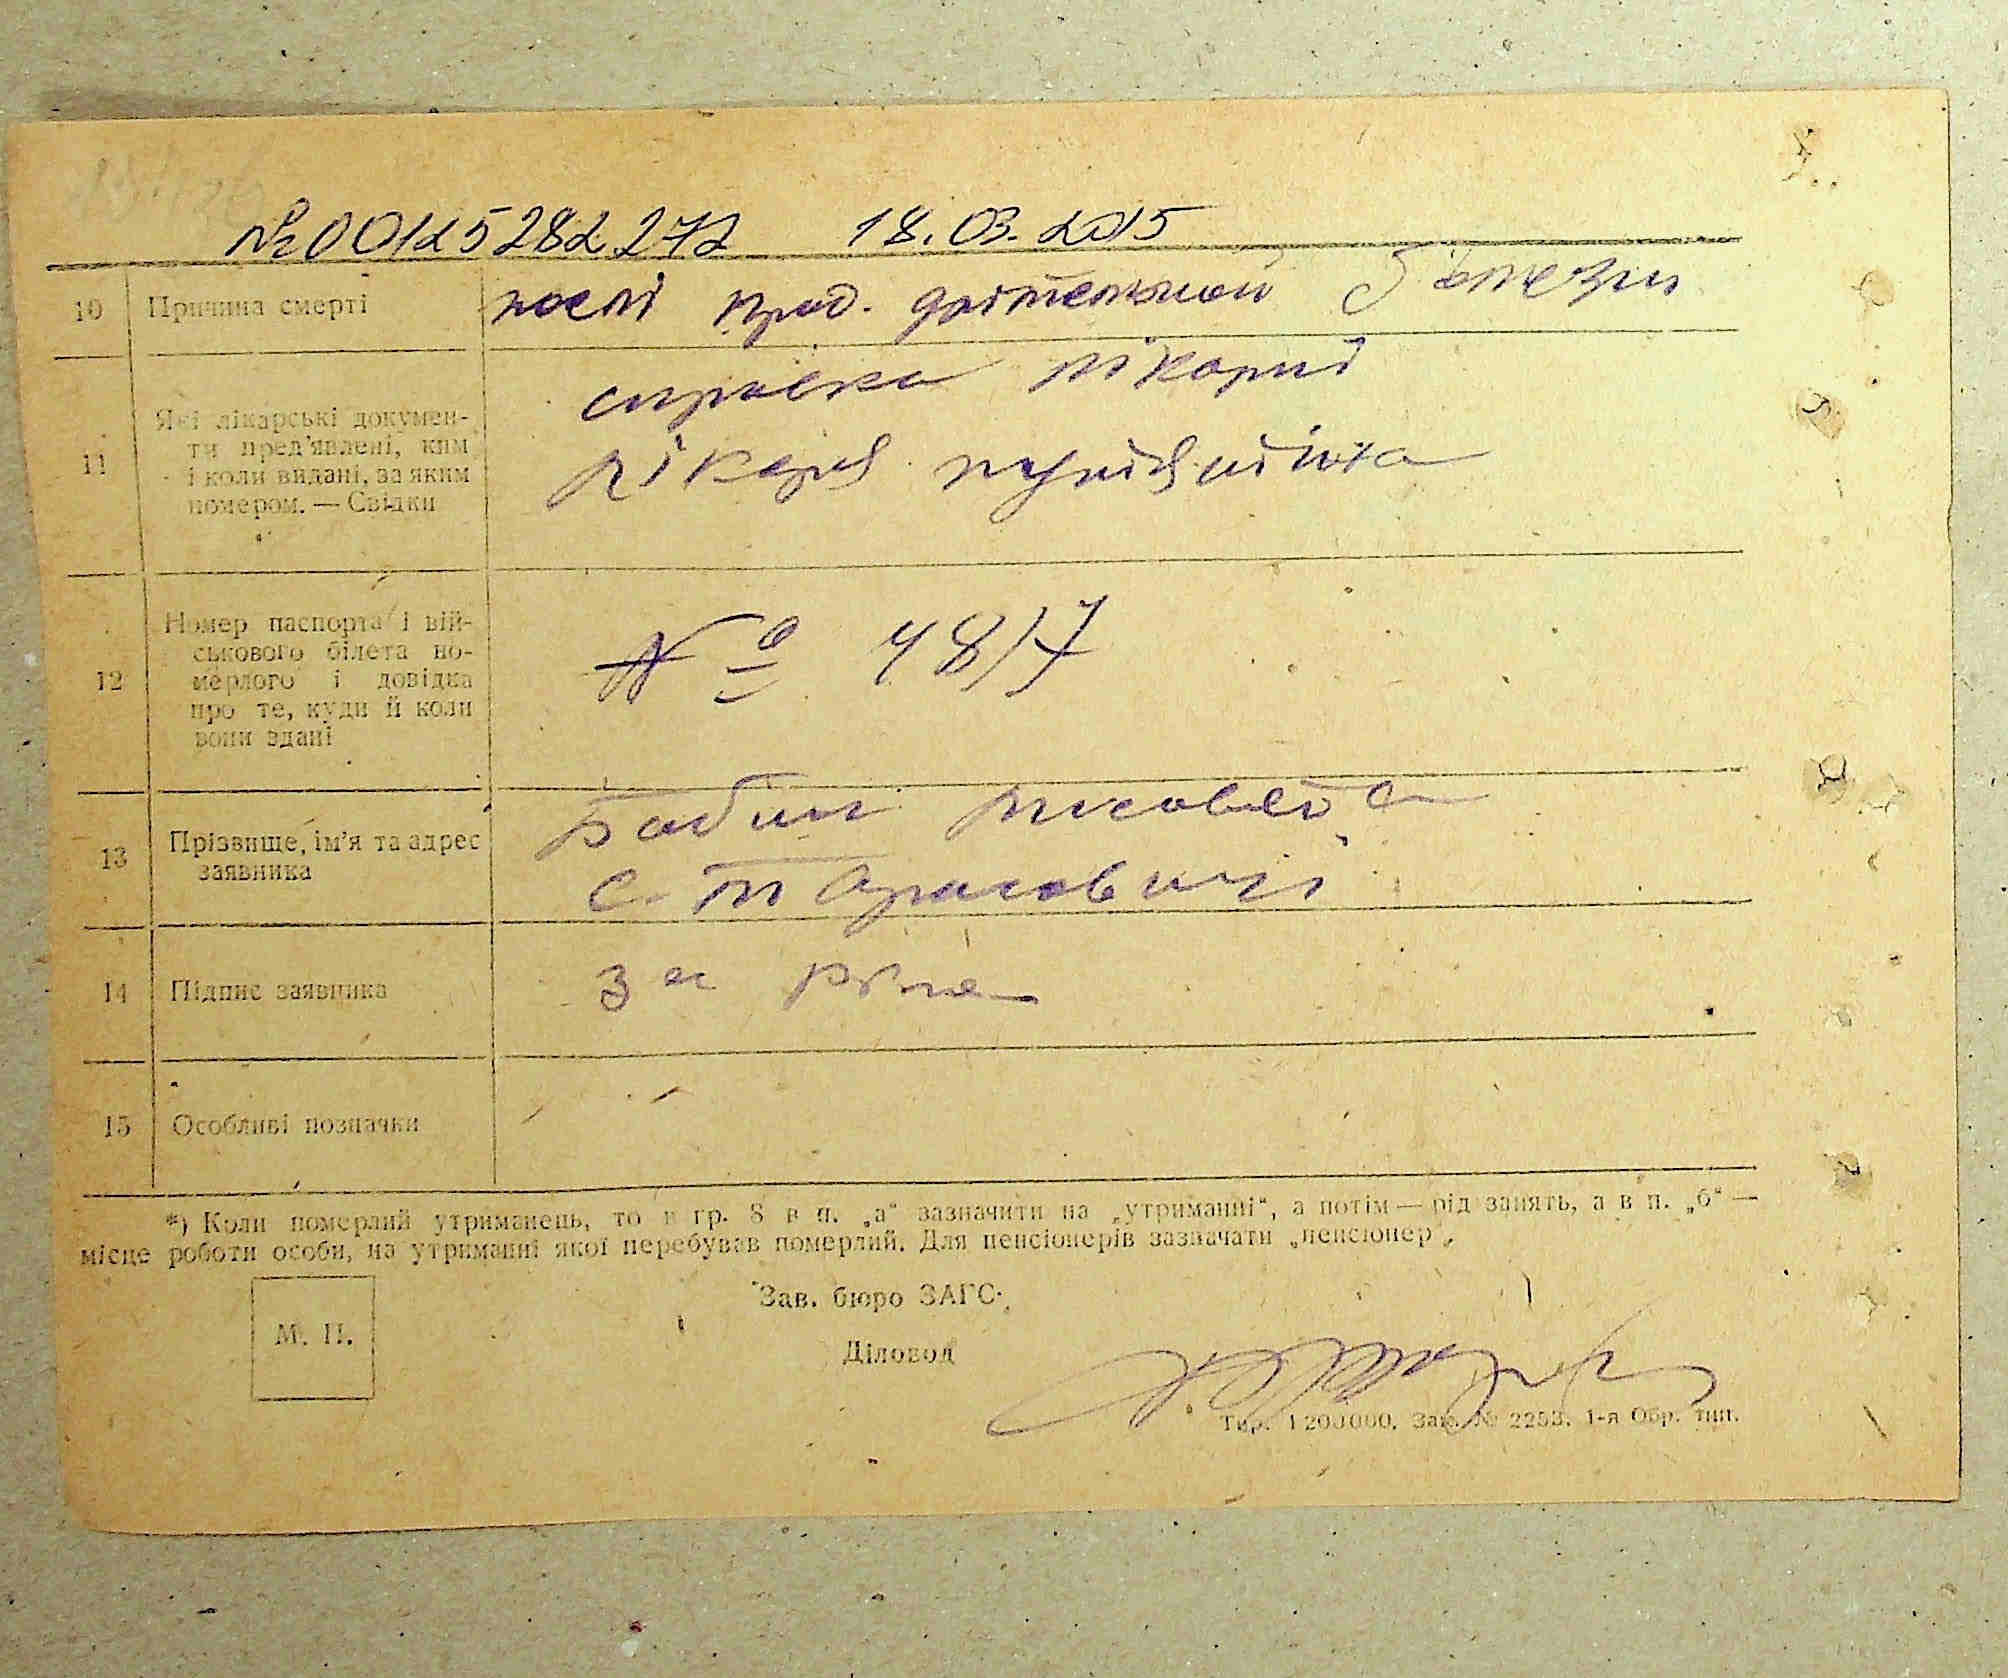 № 00125282272 18.03.2015
10 Причина смерті послі прод. длітельной
11 Які лікарські докумен-
ти пред'явлені, ким
і коли видані, за яким
номером. — Свідки
справка
лікаря
12 Номер паспорта і вій-
ськового білета по-
мерлого і довідка
про те, куди й коли
вони здані
№ 48/7
13 Прізвище, ім'я та адрес
заявника
Бабин
с. Тарасовичі
14 Підпис заявника
15 Особливі позначки
*) Коли померлий утриманець, то в гр. 8 в п. „а“ зазначити на „утриманні“, а потім — рід занять, а в п. „б“ —
місце роботи особи, на утриманні якої перебував померлий. Для пенсіонерів зазначати „пенсіонер“.
Зав. бюро ЗАГС
М. П.
Діловод
Тир. 1200000. Зам. № 2253. 1-я Обр. тип.